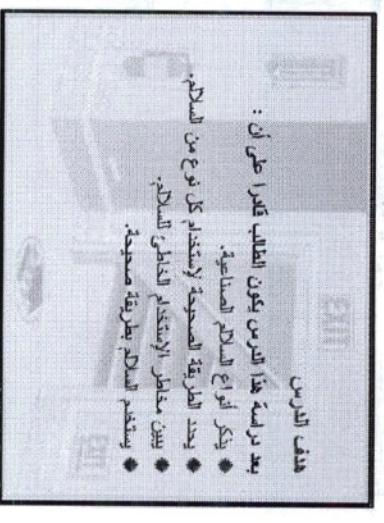 هدف الدرس
بعد دراسة هذا الدرس يكون الطالب قادرا على أن :
يذكر أنواع السلالم الصناعية.
يحدد الطريقة الصحيحة لإستخدام كل نوع من السلالم.
يبين مخاطر الإستخدام الخاطئ للسلالم.
يستخدم السلالم بطريقة صحيحة.
EXIT
EXIT